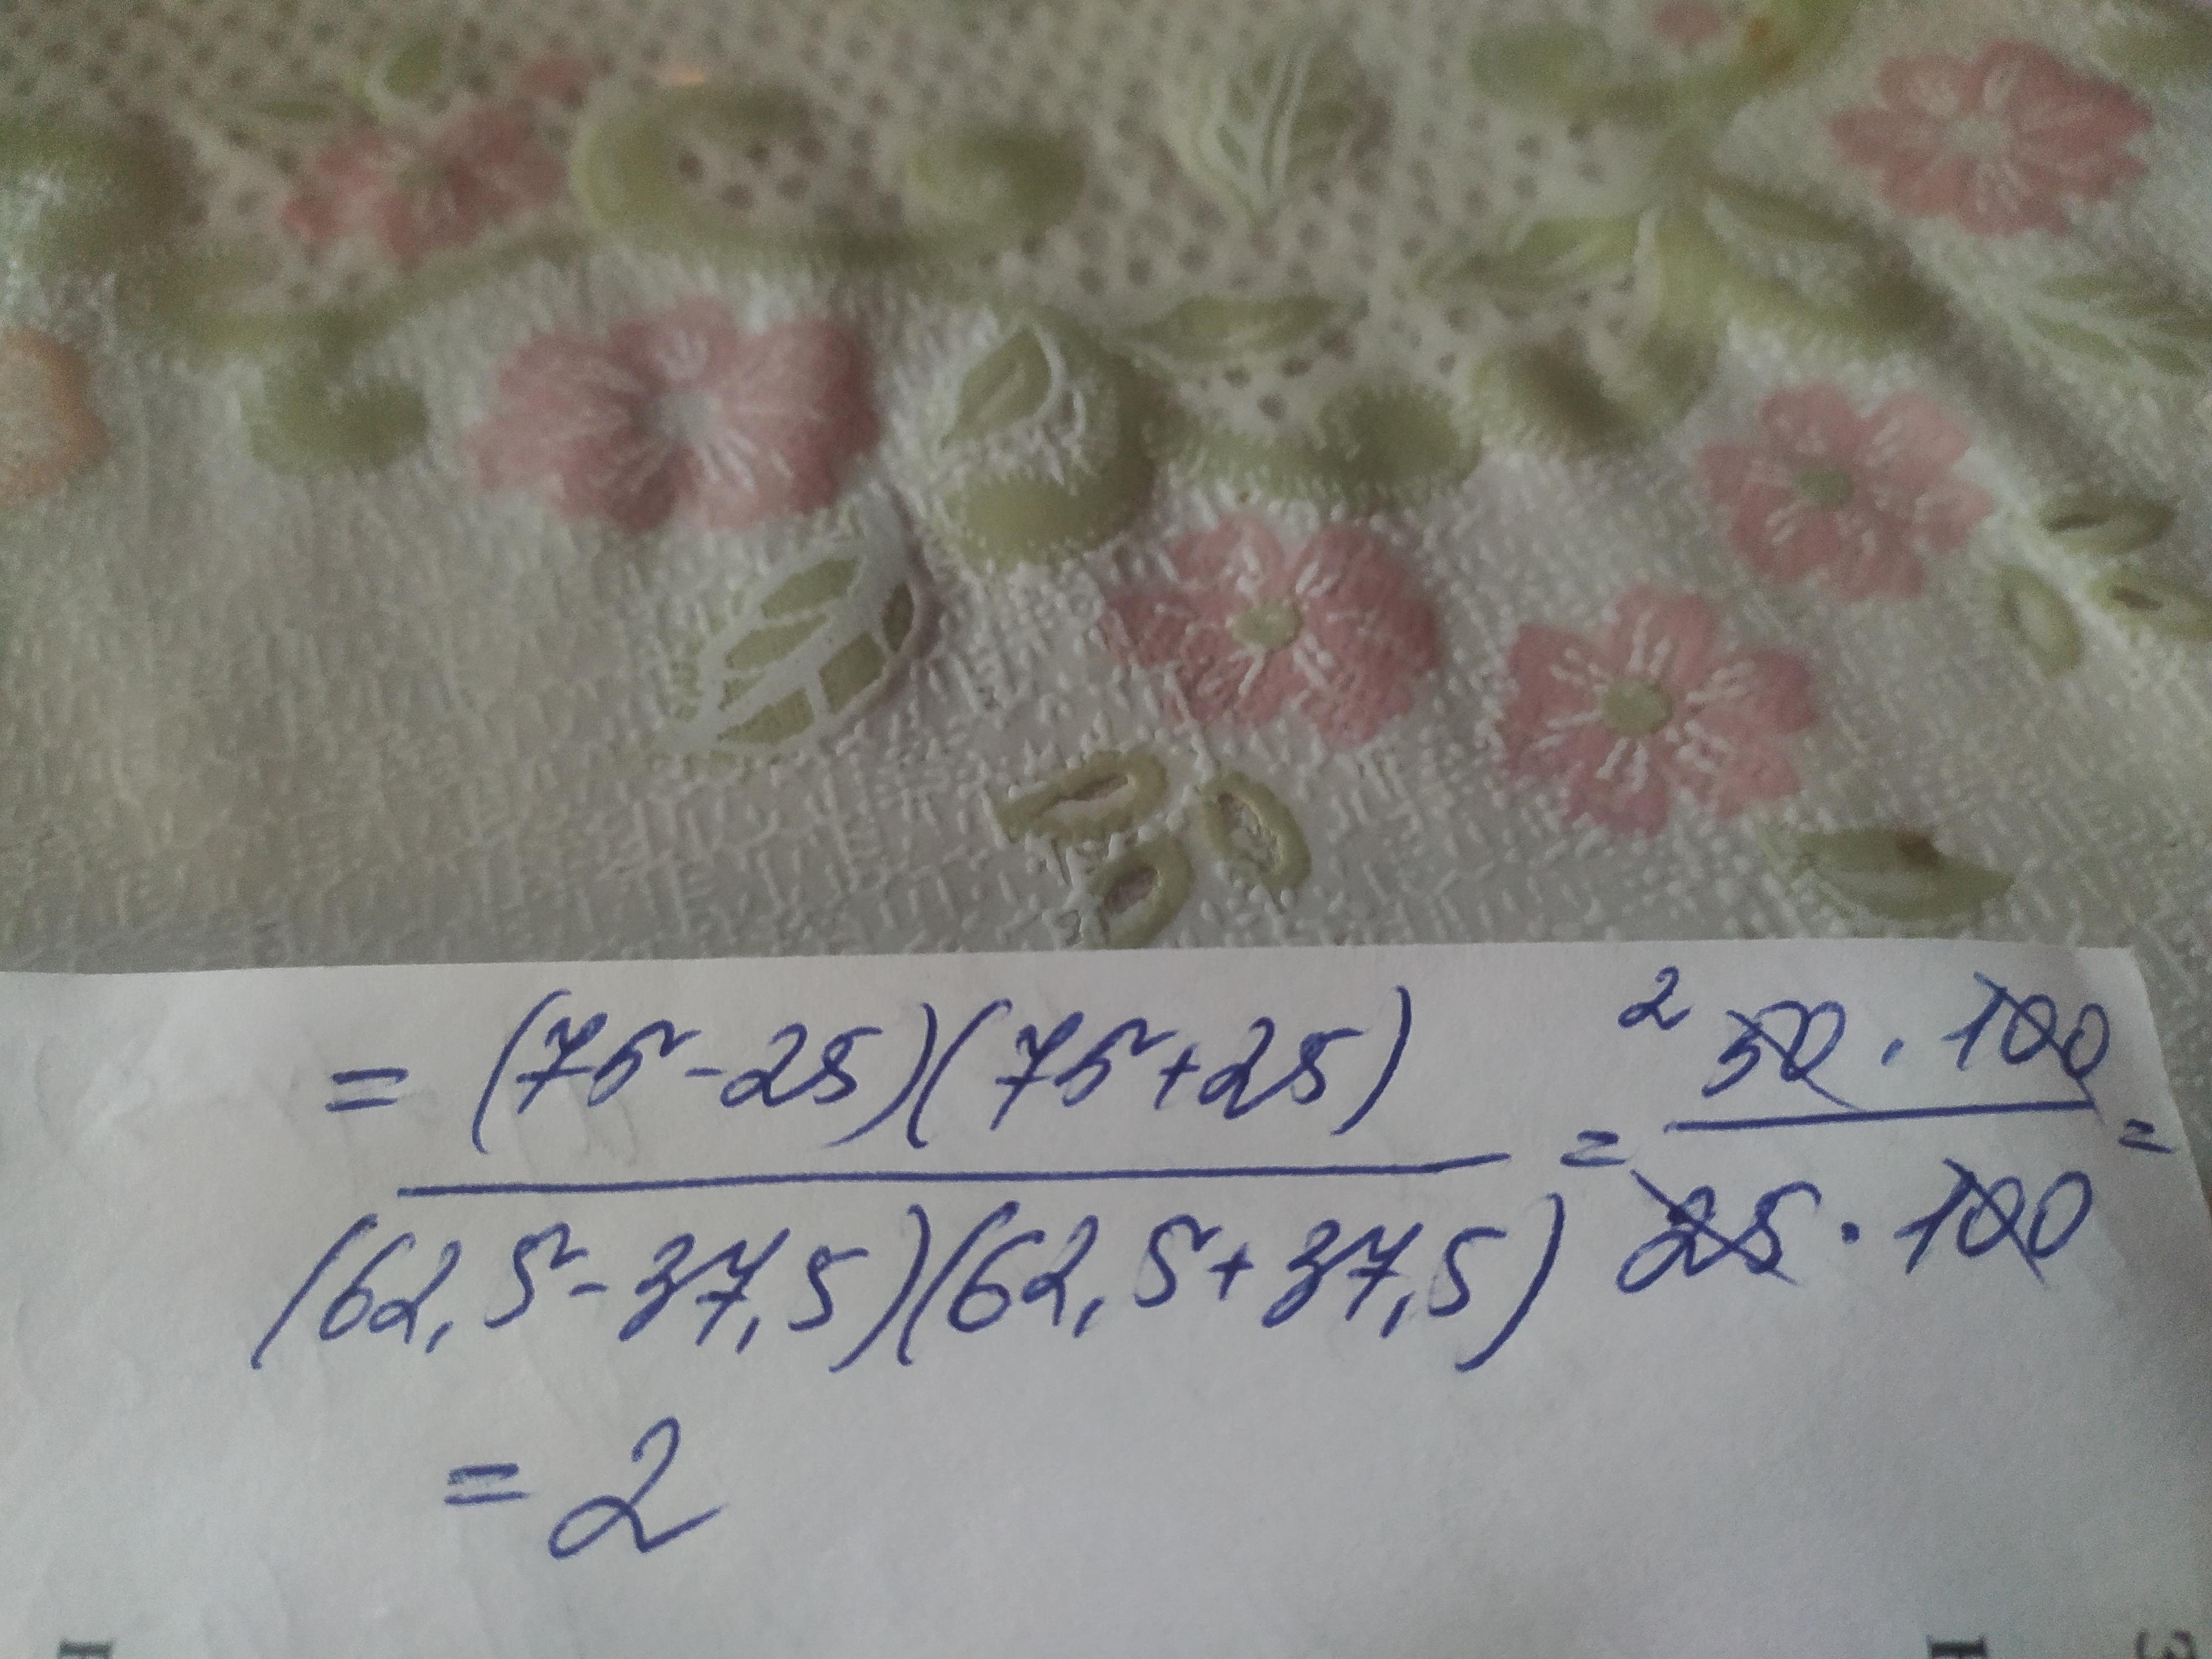 = (75-25)(75+25) / (62,5-37,5)(62,5+37,5) = 2 50 · 100 / 25 · 100 =
= 2